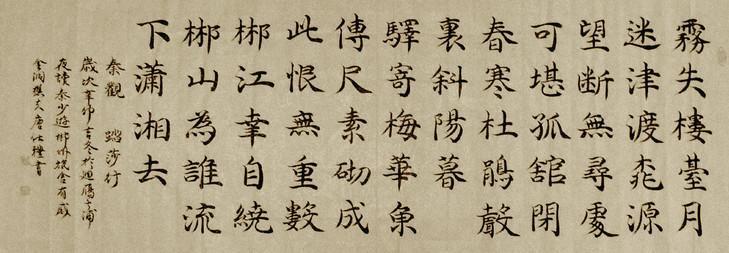 霧失樓臺月
迷津渡桃源
望断無尋處
可堪孤舘閉
春寒杜鵑聲
裏斜陽暮
驛寄梅華魚
傳尺素砌成
此恨無重數
郴江幸自繞
郴山為誰流
下瀟湘去
秦觀 踏莎行
歲次辛卯吉冬於迴鴈之浦
夜讀秦少遊郴州旅舍有感
金洲樵夫唐仕書